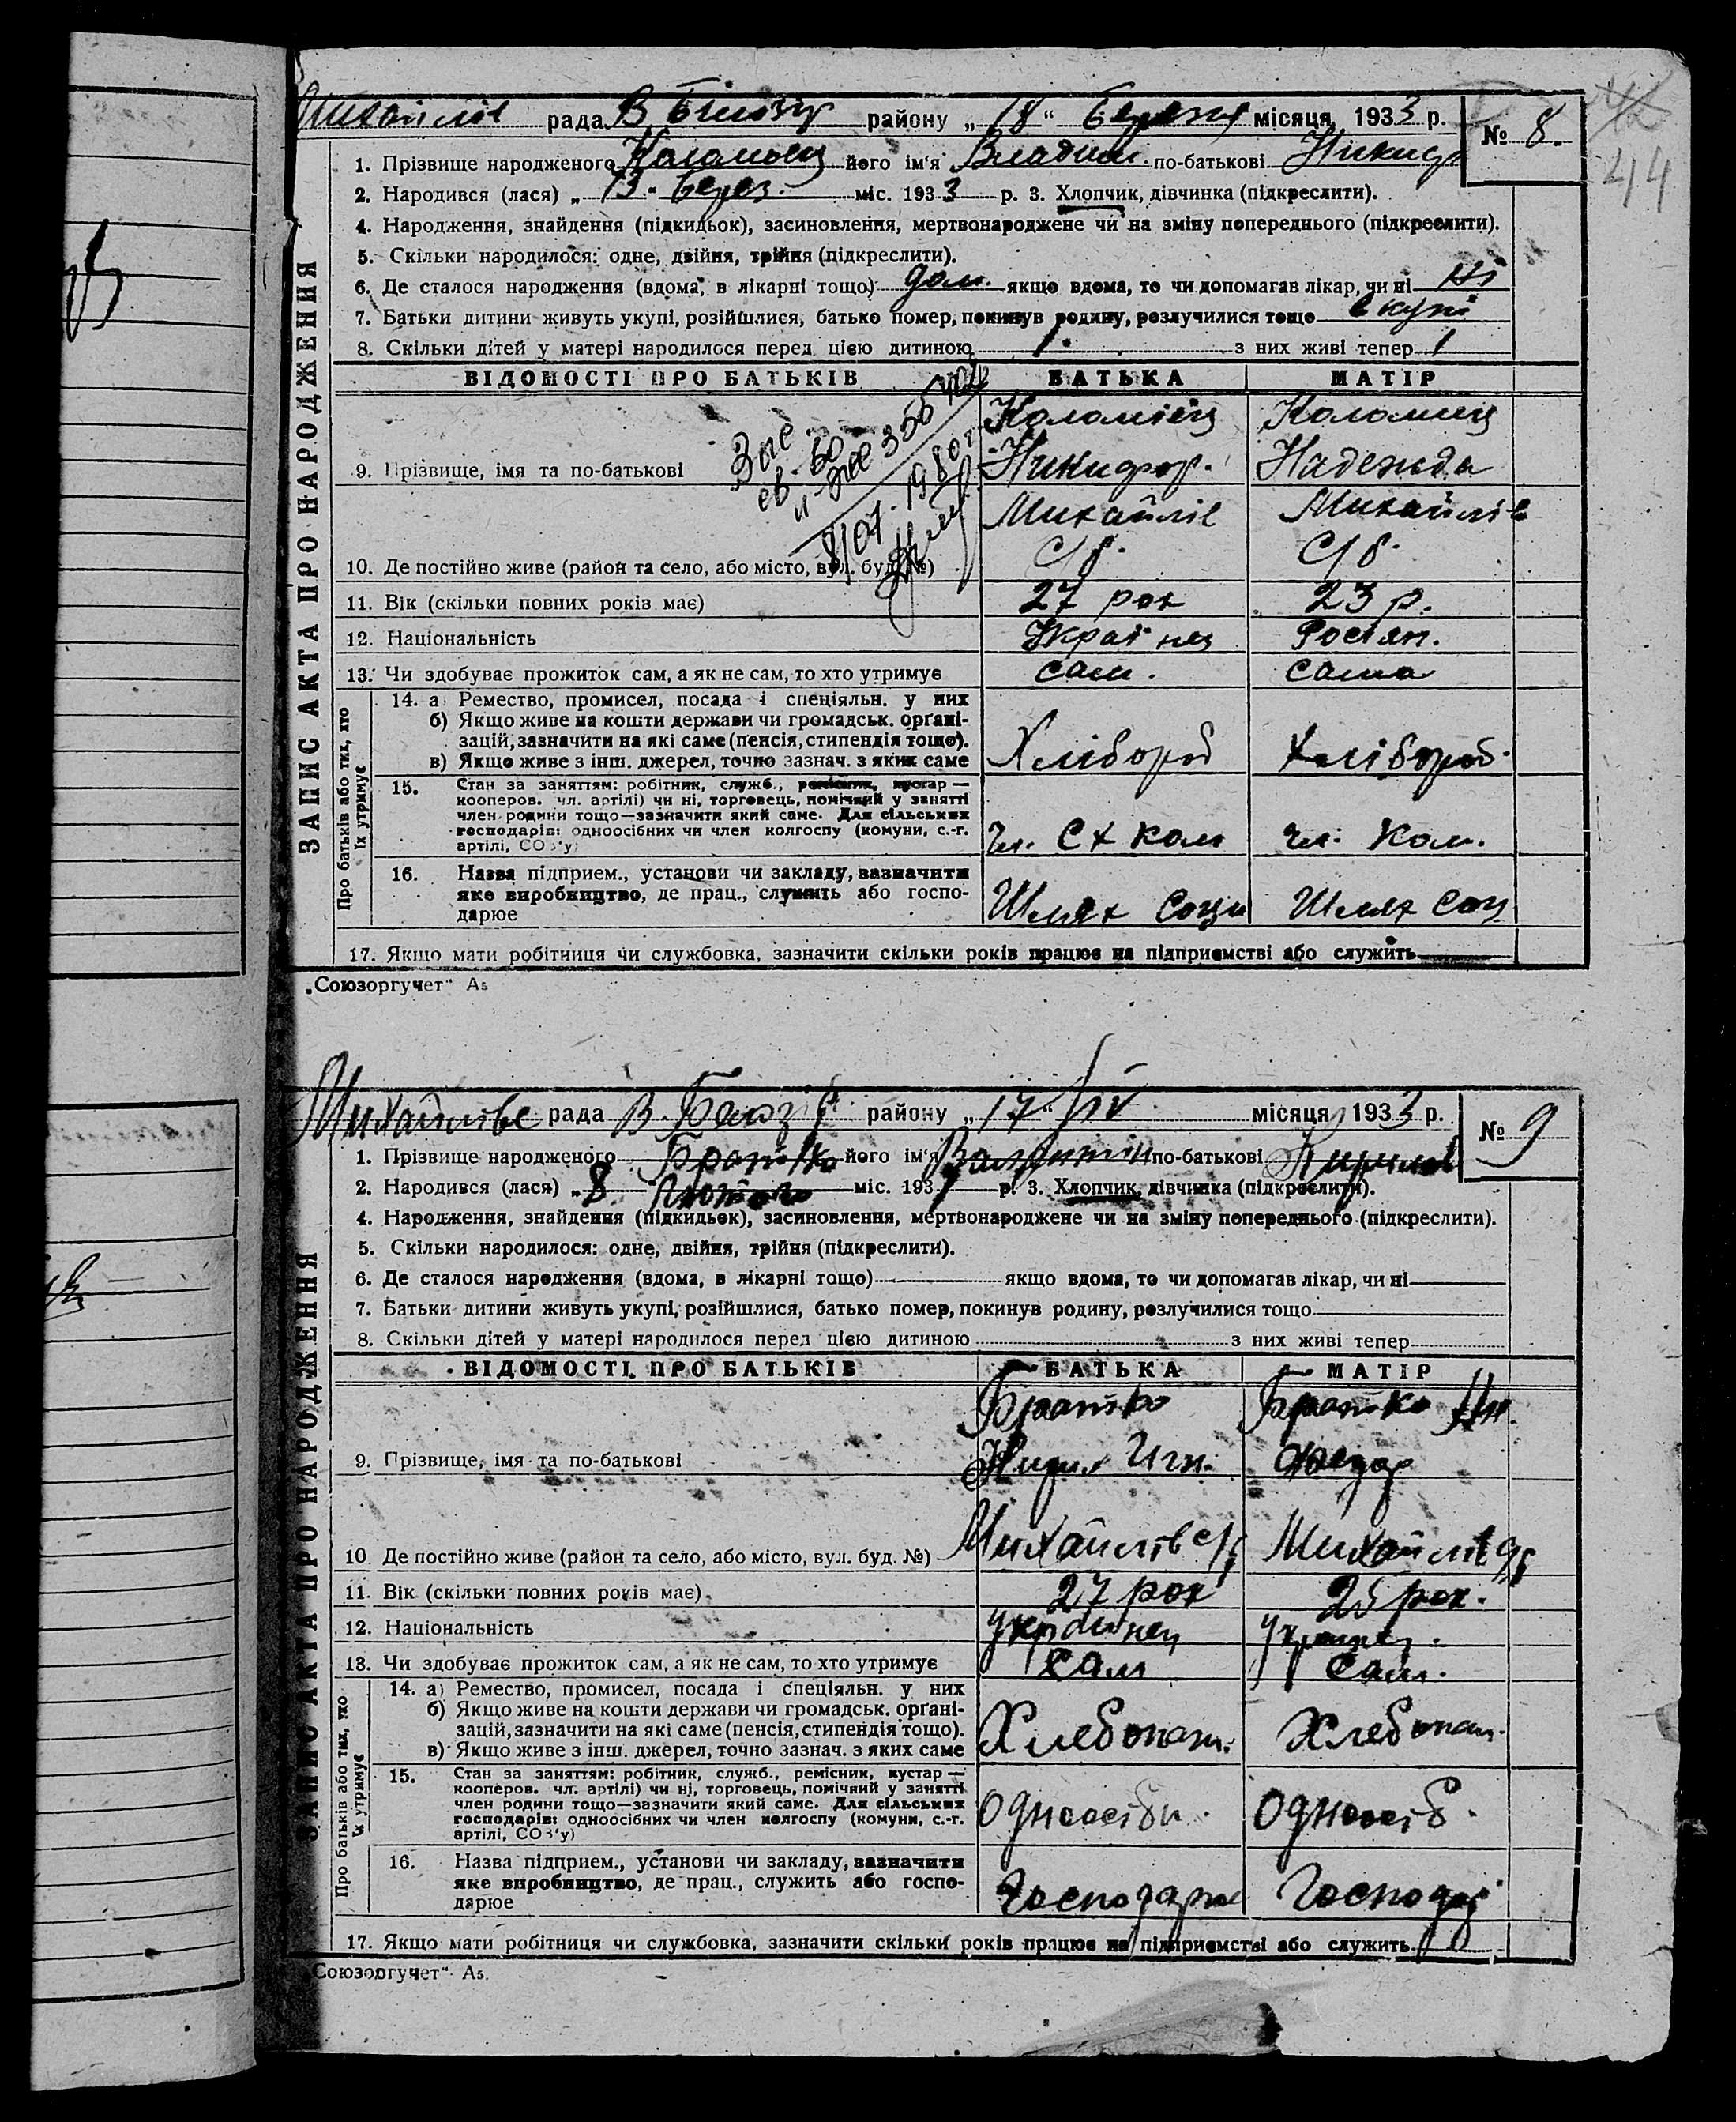 Михайлів рада В Білозір району „ 18 “ Березня місяця 1933 р. № 8.
44
ЗАПИС АКТА ПРО НАРОДЖЕННЯ
1. Прізвище народженого Коломоец його ім'я Владим по-батькові Никифр
2. Народився (лася) „ 13 - берез. міс. 1933 р. 3. Хлопчик, дівчинка (підкреслити).
4. Народження, знайдення (підкидьок), засиновлення, мертвонароджене чи на зміну попереднього (підкреслити).
5. Скільки народилося: одне, двійня, трійня (підкреслити).
6. Де сталося народження (вдома, в лікарні тощо) дом. якщо вдома, то чи допомагав лікар, чи ні ні
7. Батьки дитини живуть укупі, розійшлися, батько помер, покинув родину, розлучилися тощо вкупі
8. Скільки дітей у матері народилося перед цією дитиною 1. з них живі тепер 1
ВІДОМОСТІ ПРО БАТЬКІВ БАТЬКА МАТІР
Коломіец Коломиец
9. Прізвище, імя та по-батькові Никифор. Надежда
Михайлів Михайлів
10. Де постійно живе (район та село, або місто, вул. буд. №) С/б. С/б.
11. Вік (скільки повних років має) 27 рок 23 р.
12. Національність Українец Росіян.
13. Чи здобуває прожиток сам, а як не сам, то хто утримує сам. сама
Про батьків або тих, хто їх утримує
14. а) Ремество, промисел, посада і спеціяльн. у них
б) Якщо живе на кошти держави чи громадськ. організацій, зазначити на які саме (пенсія, стипендія тощо).
в) Якщо живе з інш. джерел, точно зазнач. з яких саме Хлібороб Хлібороб.
15. Стан за заняттям: робітник, служб., ремісник, кустар —
кооперов. чл. артілі) чи ні, торговець, помічний у занятті
член родини тощо—зазначити який саме. Для сільських
господарів: одноосібних чи член колгоспу (комуни, с.-г.
артілі, СОЗ'у) Чл. СХ ком чл. Ком.
16. Назва підприєм., установи чи закладу, зазначити
яке виробництво, де прац., служить або госпо-
дарює Шлях Соци Шлях соц
17. Якщо мати робітниця чи службовка, зазначити скільки років працює на підприємстві або служить
„Союзоргучет“ А₅
Михайлівс рада В. Білозір району „ 17 “ IV місяця 1933 р. № 9
ЗАПИС АКТА ПРО НАРОДЖЕННЯ
1. Прізвище народженого Братко його ім'я Валентин по-батькові Кирилов
2. Народився (лася) „ 8 Лютого міс. 193 р. 3. Хлопчик, дівчинка (підкреслити).
4. Народження, знайдення (підкидьок), засиновлення, мертвонароджене чи на зміну попереднього (підкреслити).
5. Скільки народилося: одне, двійня, трійня (підкреслити).
6. Де сталося народження (вдома, в лікарні тощо) якщо вдома, то чи допомагав лікар, чи ні
7. Батьки дитини живуть укупі, розійшлися, батько помер, покинув родину, розлучилися тощо
8. Скільки дітей у матері народилося перед цією дитиною з них живі тепер
ВІДОМОСТІ ПРО БАТЬКІВ БАТЬКА МАТІР
Братко Братко
9. Прізвище, імя та по-батькові Кирил Игн. Федор
10. Де постійно живе (район та село, або місто, вул. буд. №) Михайлів с/б Михайлів с/б
11. Вік (скільки повних років має). 27 рок 25 рок.
12. Національність українец украінец.
13. Чи здобуває прожиток сам, а як не сам, то хто утримує сам сам.
Про батьків або тих, хто їх утримує
14. а) Ремество, промисел, посада і спеціяльн. у них
б) Якщо живе на кошти держави чи громадськ. органі-
зацій, зазначити на які саме (пенсія, стипендія тощо).
в) Якщо живе з інш. джерел, точно зазнач. з яких саме Хлебопаш. Хлебопаш.
15. Стан за заняттям: робітник, служб., ремісник, кустар —
кооперов. чл. артілі) чи ні, торговець, помічний у занятті
член родини тощо—зазначити який саме. Для сільських
господарів: одноосібних чи член колгоспу (комуни, с.-г.
артілі, СОЗ'у) Одноосіби. Одноосіб.
16. Назва підприєм., установи чи закладу, зазначити
яке виробництво, де прац., служить або госпо-
дарює Господарює Господар
17. Якщо мати робітниця чи службовка, зазначити скільки років працює на підприємстві або служить
„Союзоргучет“ А₅.